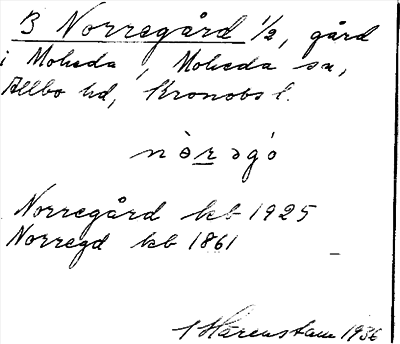 B Norregård ½, gård
i Moheda, Moheda sn,
Allbo hd, Kronobs l.
nòrəgó
Norregård kb 1925
Norregd kb 1861
Härenstam 1936